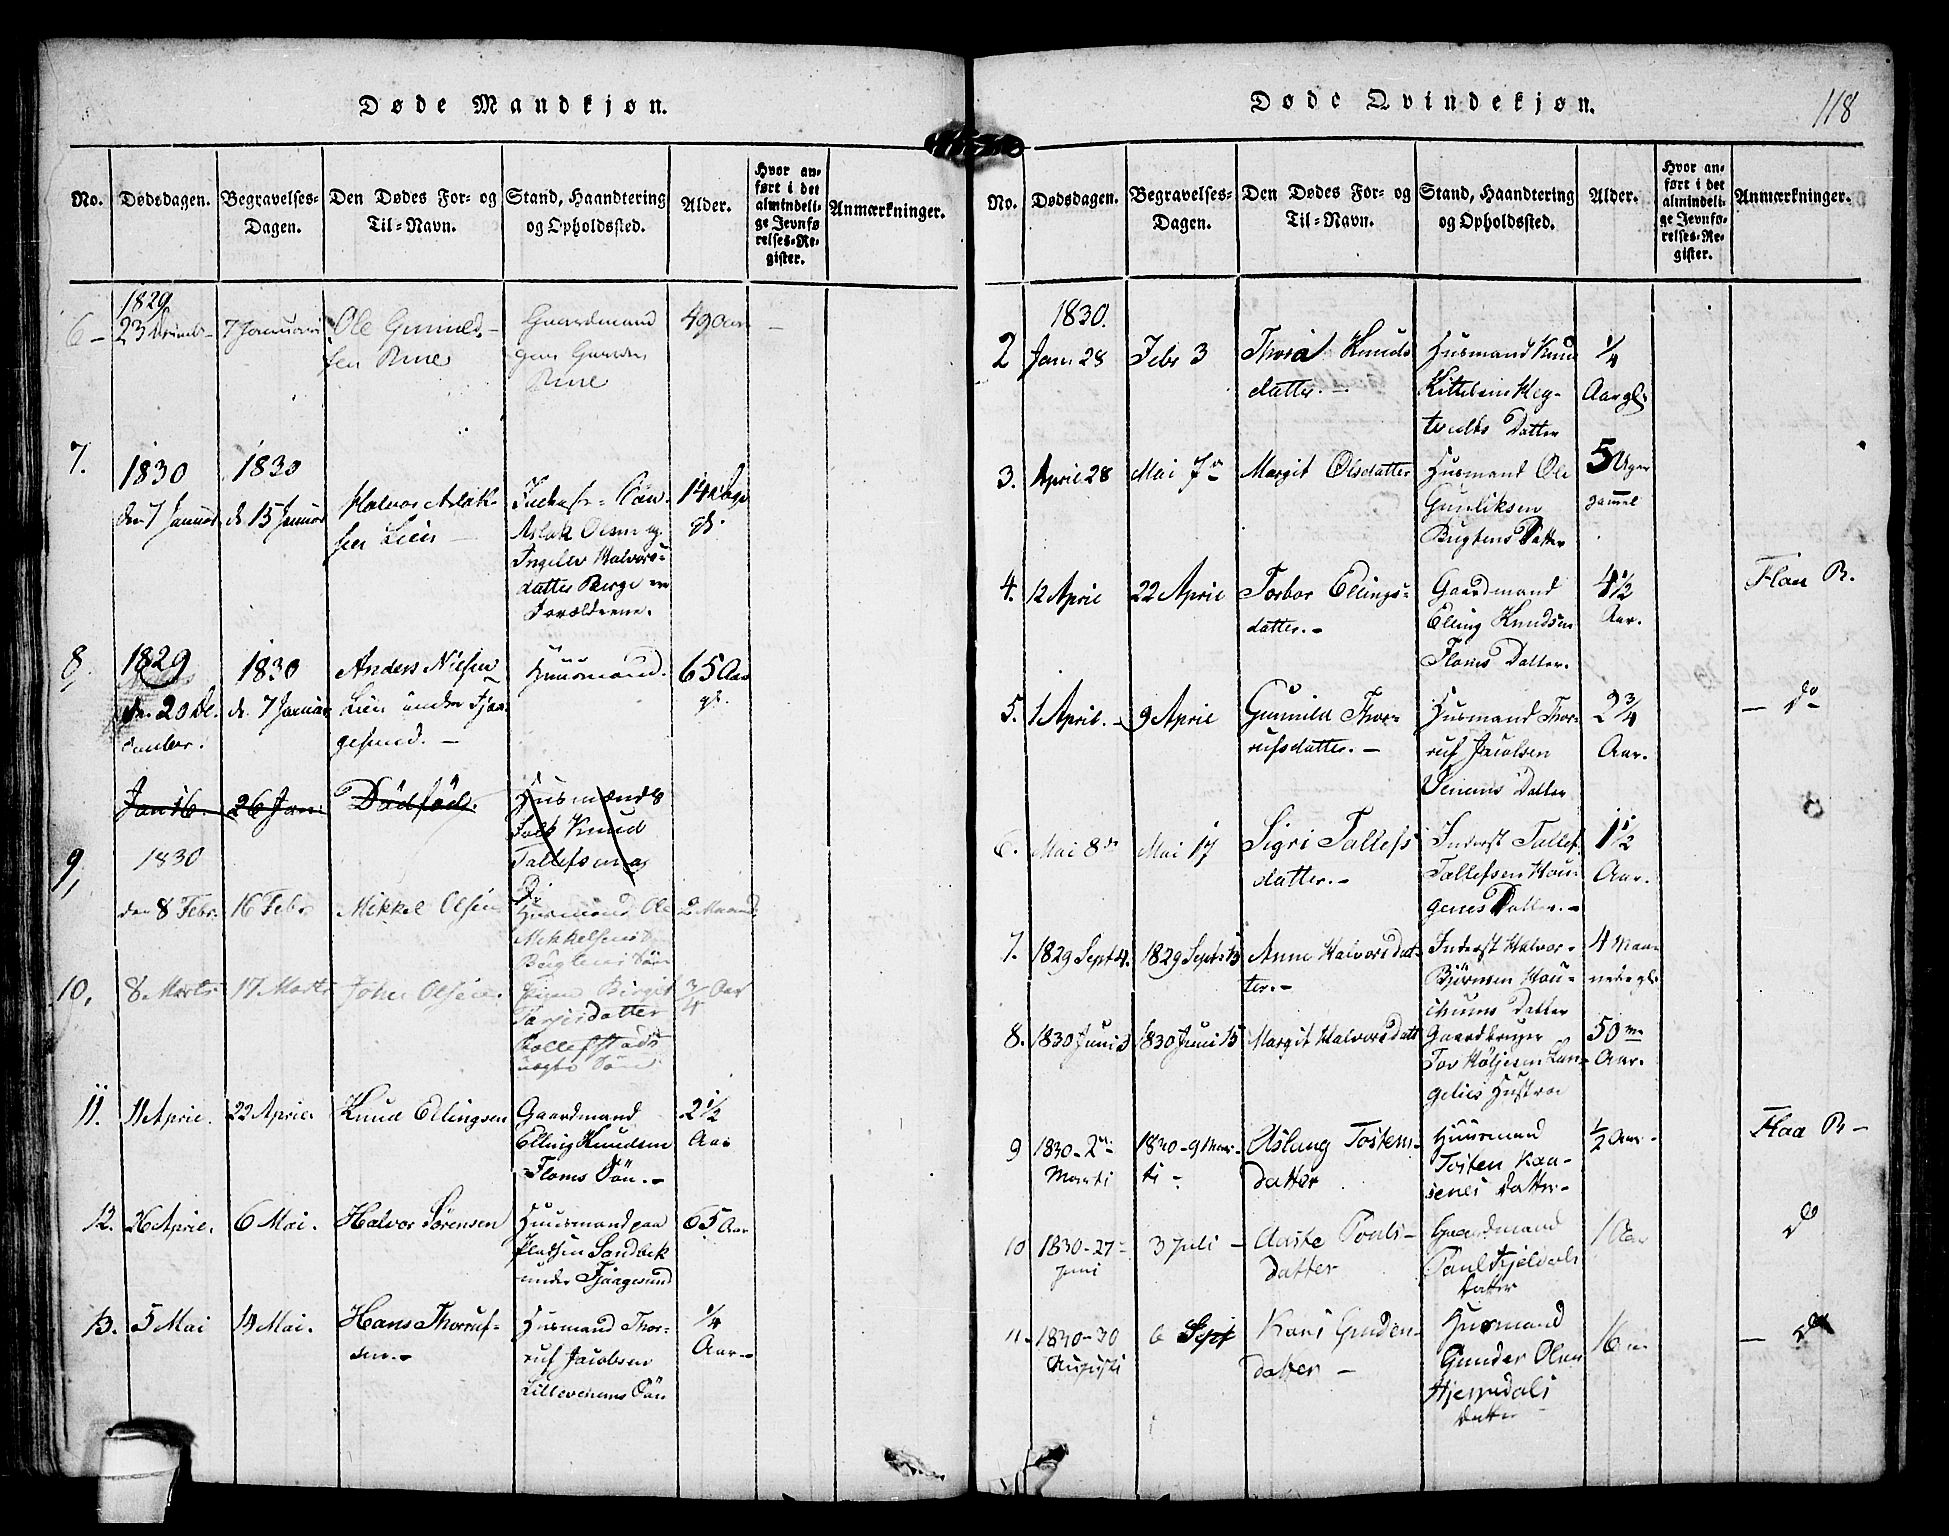 Døde Mandkjøn.
No.
Dødsdagen.
Begravelses-
Dagen.
Den Dødes For- og
Til-Navn.
Stand, Haandtering
og Opholdssted.
Alder.
Hvor an-
ført i det
almindeli-
ge Jevnfø
relses-Re-
gister.
Anmærkninger.
6 -
1829
23
7 Januari
Ole
sen
Gaardmand
49 Aar
7.
1830
den 7 Januar
1830
d. 15 Januar
Halvor Aslak-
sen Lien -
Aslak Olsen og
Ingelev Halvors-
datter Berge ere
Forældrene.
14
gl.
8,
1829
den 20 De-
cember.
1830
d. 7 Januar
Anders Nilsen
Lien under Fjaa-
gesund. -
Huusmand.
65 Aar
gl.
Jan 16.
26 Jan:
Dödföd.
Husmænds
Folk Knud
Tallefsen og
9,
1830
den 8 Febr.
16 Febr
Mikkel Olsen
Husmand Ole
Mikkelsen
Bugtens Sön
2 Maaned
10,
8 Marts
17 Marts
John Olsen
Birgit
Tarjesdatter
Sön
3/4 Aar
11.
11 April.
22 April.
Knud Ellingsen
Gaardmand
Elling Knudsen
Floms Sön. -
2 1/2
Aar
12.
26 April.
6 Mai.
Halvor Sörensen
Huusmand paa
Pladsen Sandbek
under Fjaagesund
65 Aar
13.
5 Mai
14 Mai.
Hans Thorruf-
sen. -
Husmand Thor-
ruf Jacobsen
Lillevenems Sön
1/4
Aar. -
Døde Qvindekjøn.
118
No.
Dødsdagen.
Begravelses-
Dagen.
Den Dødes For- og
Til-Navn.
Stand, Haandtering
og Opholdssted.
Alder.
Hvor an-
ført i det
almindeli-
ge Jevnfø-
relses-Re-
gister.
Anmærkninger.
2
1830.
Jan: 28
Febr 3
Thora Knuds
datter. -
Husmand Knud
Datter
1/4
Aar gl.
3.
April 28
Mai 7
Margit Olsdatter
Husmand Ole
Gunliksen
Bugtens Datter
5 Uger
gamel
4.
12 April
22 April
Torbor Ellings-
datter. -
Gaardmand
Elling Knudsen
Floms Datter.
4 1/2
Aar.
Flaa P.
5.
1 April. -
9 April
Gunnild Thor-
rufsdatter. -
Husmand Thor-
ruf Jacobsen
Venems Datter
2 3/4
Aar.
- do
6.
Mai 8
Mai 17
Sigri Tallefs
datter. -
Inderst Tallef
Tallefsen Hou-
genes Datter. -
1 1/2
Aar.
7.
1829 Sept 4.
1829 Sept 13
Anne Halvorsdat-
ter. -
Inderst Halvor
Björnsen Hou-
Datter
4 Maa-
neder gl.
8.
1830 Juni 3
1830 Juni 15
Margit Halvorsdatt
Gaardbruger
Tov Höljesen Lan-
gelies Hustroe
50
Aar.
9
1830 - 2
Marti
1830 - 9 Mar-
ti -
Aslaug Tostens-
datter
Huusmand
Tosten Kaa-
senes Datter -
1/2 Aar -
Flaa P -
10
1830 - 27
Juni
3 Juli -
Aaste Pouls-
datter
Gaardmand
Poul Kjeldals
Datter
1 Aar
do
11 -
1830 - 30
Augusti
6 Sept
Kari Gunders-
datter -
Husmand
Gunder Olsen
Hjerpedals
Datter
16
- do